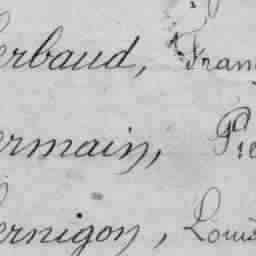 erbaud, Fran
ermain, Pie
ernigon, Louis